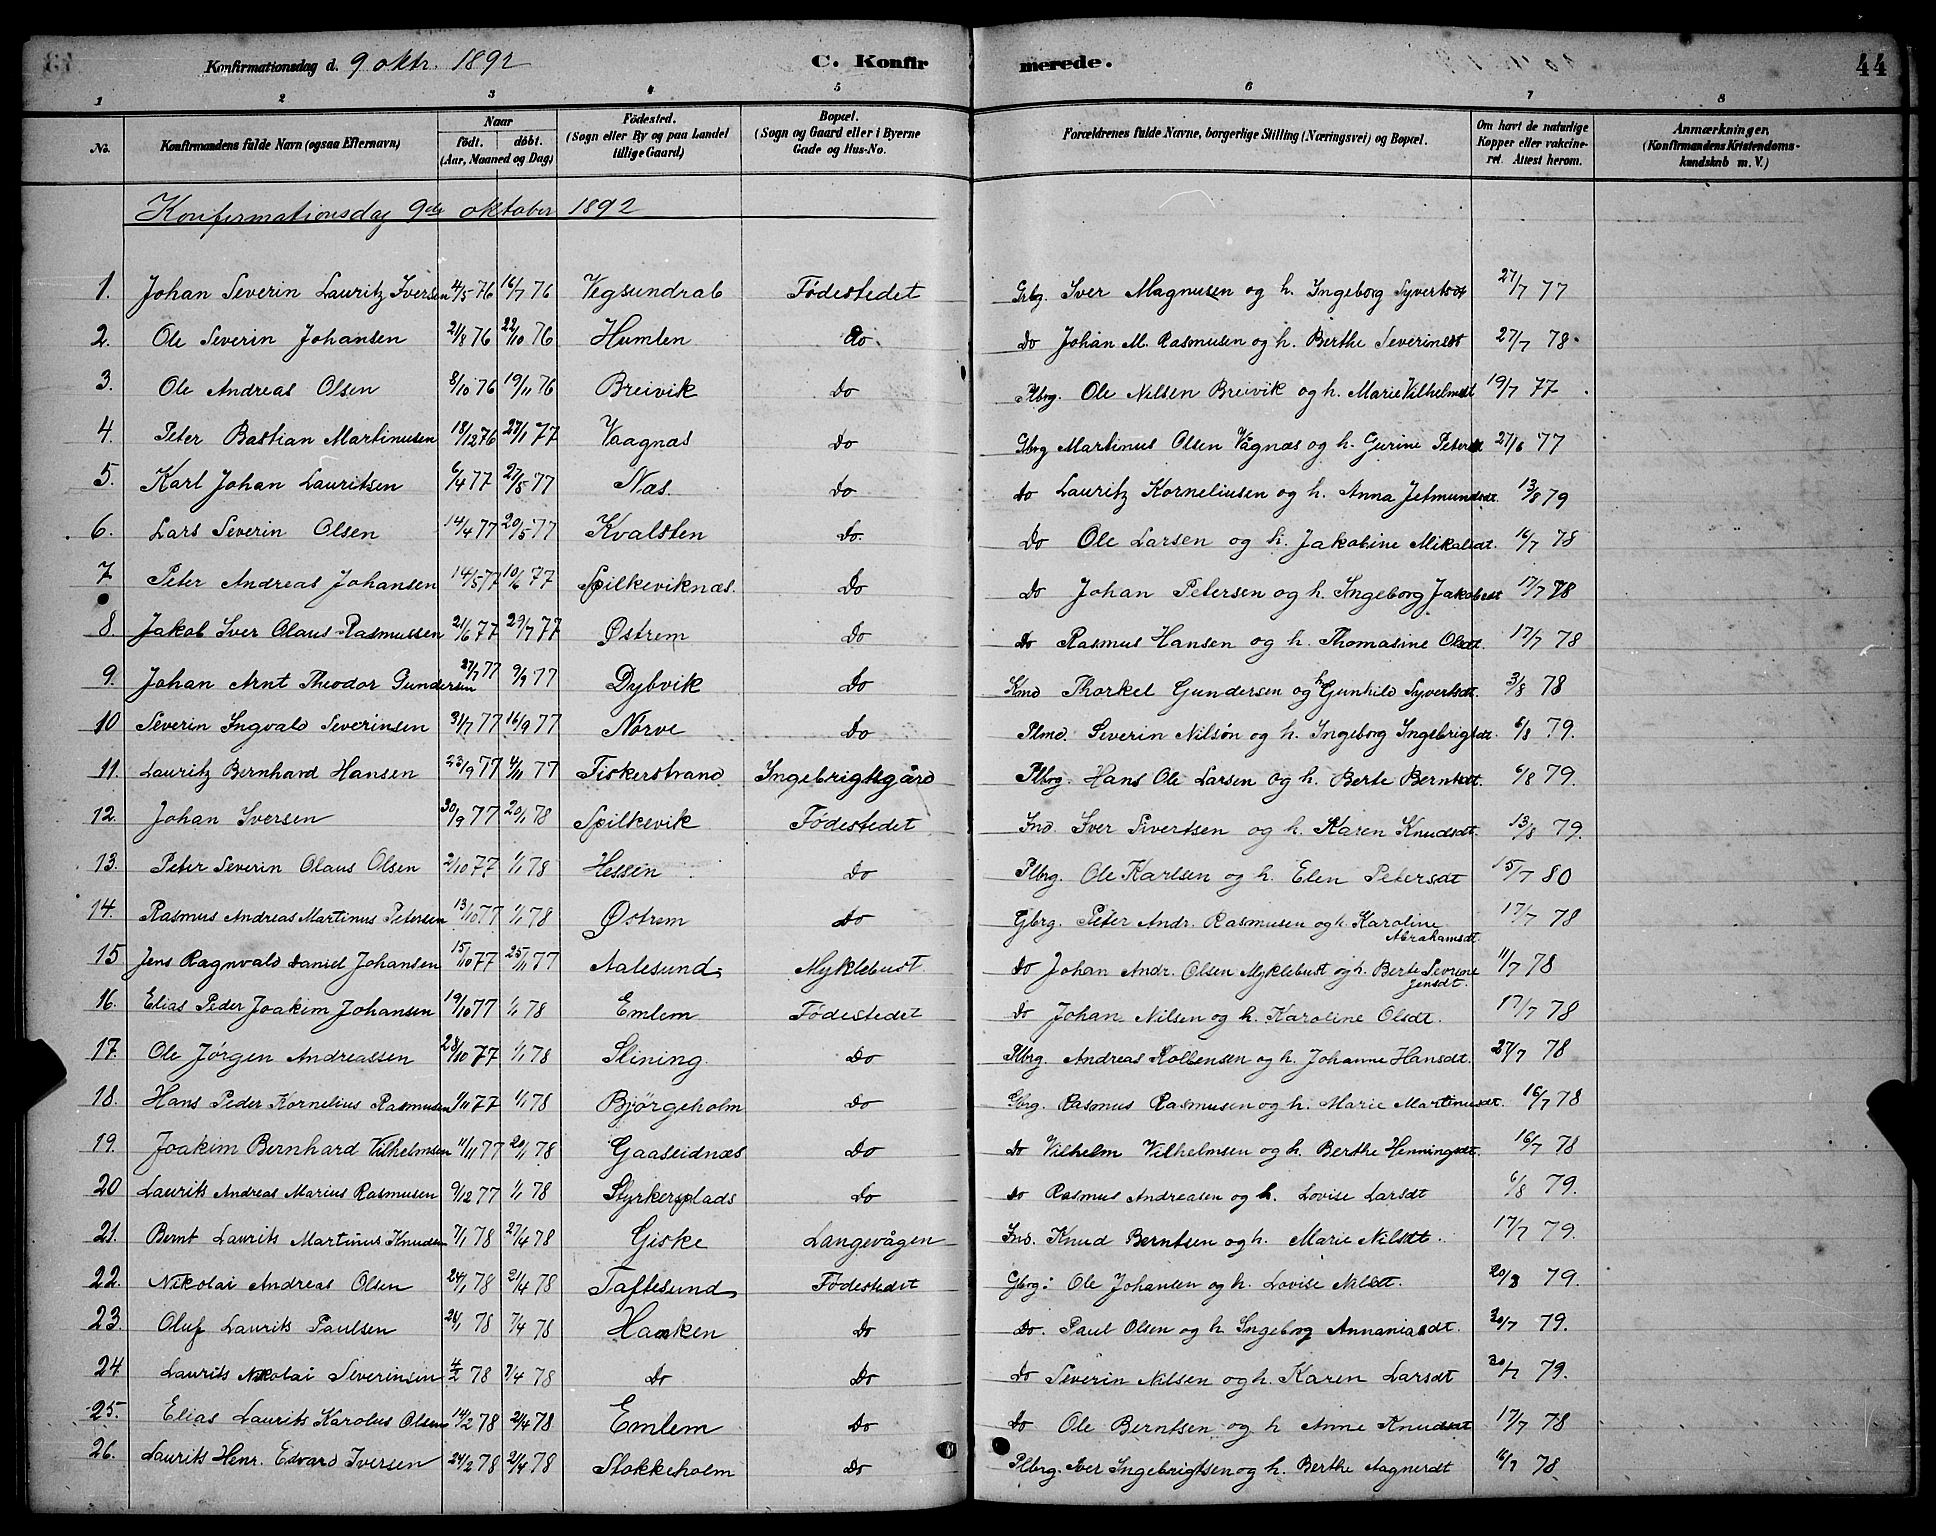 Konfirmationsdag d. 9 oktr. 1892 C. Konfirmerede. 44
1 2 3 4 5 6 7 8
No. Konfirmandens fulde Navn (ogsaa Efternavn) Naar født. døbt. (Aar, Maaned og Dag) Fødested. (Sogn eller By og paa Landet tillige Gaard) Bopæl. (Sogn og Gaard eller i Byerne Gade og Hus-No. Forældrenes fulde Navne, borgerlige Stilling (Næringsvei) og Bopæl. Om havt de naturlige Kopper eller vakcineret. Attest herom. Anmærkninger, (Konfirmandens Kristendomskundskab m. V.)
Konfirmationsdag 9de oktober 1892
1. Johan Severin Lauritz Iversen 4/5 76 16/7 76 Vegsundrab Fødestedet Grbg. Iver Magnusen og h. Ingeborg Syvertsdt 27/7 77
2. Ole Severin Johansen 21/8 76 22/10 76 Humlen do Do Johan M. Rasmusen og h. Berthe Severinsdt 27/7 78
3. Ole Andreas Olsen 8/10 76 19/11 76 Breivik Do Plbrg. Ole Nilsen Breivik og h. Marie Vilhelmsdt 19/7 77
4. Peter Bastian Martinusen 18/12 76 27/1 77 Vaagnæs Do Gbrg Martinus Olsen Vågnæs og h. Gurine Petersdt 27/6 77
5. Karl Johan Lauritsen 6/4 77 27/5 77 Næs. Do Do Lauritz Korneliusen og h. Anna Jetmundsdt. 13/8 79
6. Lars Severin Olsen 14/4 77 20/5 77 Kvalsten Do Do Ole Larsen og h. Jakobine Mikalsdt. 16/7 78
7 Peter Andreas Johansen 14/5 77 10/6 77 Spilkeviknæs. Do Do Johan Petersen og h. Ingeborg Jakobsdt 17/7 78
8. Jakob Iver Olaus Rasmussen 21/6 77 29/7 77 Østrem Do Do Rasmus Hansen og h. Thomasine Olsdt. 17/7 78
9. Johan Arnt Theodor Gundersen 27/7 77 9/9 77 Dybvik Do Kmd Thorkel Gundersen og h. Gunhild Syvertsdt. 3/8 78
10 Severin Ingvald Severinsen 31/7 77 16/9 77 Nørve Do Plmd. Severin Nilsøn og h. Ingeborg Ingebrigtsdt. 6/8 79.
11. Lauritz Bernhard Hansen 23/9 77 4/11 77 Fiskerstrand Ingebrigtsgård Plbrg. Hans Ole Larsen og h. Berte Berntsdt. 6/8 79.
12. Johan Iversen 30/9 77 20/1 78 Spilkevik Fødestedet Ind Iver Sivertsen og h. Karen Knudsdt. 13/8 79.
13. Peter Severin Olaus Olsen 2/10 77 1/1 78 Hessen Do Plbrg. Ole Karlsen og h. Elen Petersdt 15/7 80
14. Rasmus Andreas Martinus Petersen 13/10 77 1/1 78 Østrem Do Gbrg. Peter Andr. Rasmusen og h. Karoline Abrahamsdt. 17/7 78
15 Jens Ragnvald Daniel Johansen 15/10 77 25/11 77 Aalesund Myklebust Do Johan Andr. Olsen Myklebust og h. Berte Severine Jensdt. 11/7 78
16. Elias Peder Joakim Johansen 19/10 77 1/1 78 Emlem Fødestedet Do Johan Nilsen og h. Karoline Olsdt. 17/7 78
17. Ole Jørgen Andreassen 28/10 77 1/1 78 Slining. Do Plbrg Andreas Kolbensen og h. Johanne Hansdt. 27/7 78
18. Hans Peder Kornelius Rasmusen 1/11 77 1/1 78 Bjørgeholm Do Gbrg. Rasmus Rasmusen og h. Marie Martinusdt. 16/7 78
19. Joakim Bernhard Vilhelmsen 11/11 77 20/1 78 Gaaseidnæs Do Do Vilhelm Vilhelmsen og h. Berthe Henningsdt. 16/7 78
20 Laurits Andreas Marius Rasmusen 9/12 77 1/1 78 Styrkersplads Do Do Rasmus Andreasen og h. Lovise Larsdt 6/8 79.
21. Bernt Laurits Martinus Knudsen 7/1 78 27/4 78 Giske Langevågen Ind. Knud Berntsen og h. Marie Nilsdt. 17/7 79.
22. Nikolai Andreas Olsen 24/1 78 21/4 78 Taftesund Fødestedet Gbrg: Ole Johansen og h. Lovise Nilsdt. 20/8 79.
23. Oluf Laurits Paulsen 24/1 78 7/4 78 Haaken Do Do. Paul Olsen og h Ingeborg Annaniasdt. 30/7 79.
24. Laurits Nikolai Severinsen 4/2 78 7/4 78 Do Do Do Severin Nilsen og h. Karen Larsdt 30/7 79.
25. Elias Laurits Karolus Olsen 14/2 78 21/4 78 Emlem Do Do Ole Berntsen og h Anne Knudsdt 17/7 78
26. Laurits Henr. Edvard Iversen 24/2 78 21/4 78 Stokkeholm Do Plbrg. Iver Ingebrigtsen og h. Berthe Aagnerdt 16/7 78